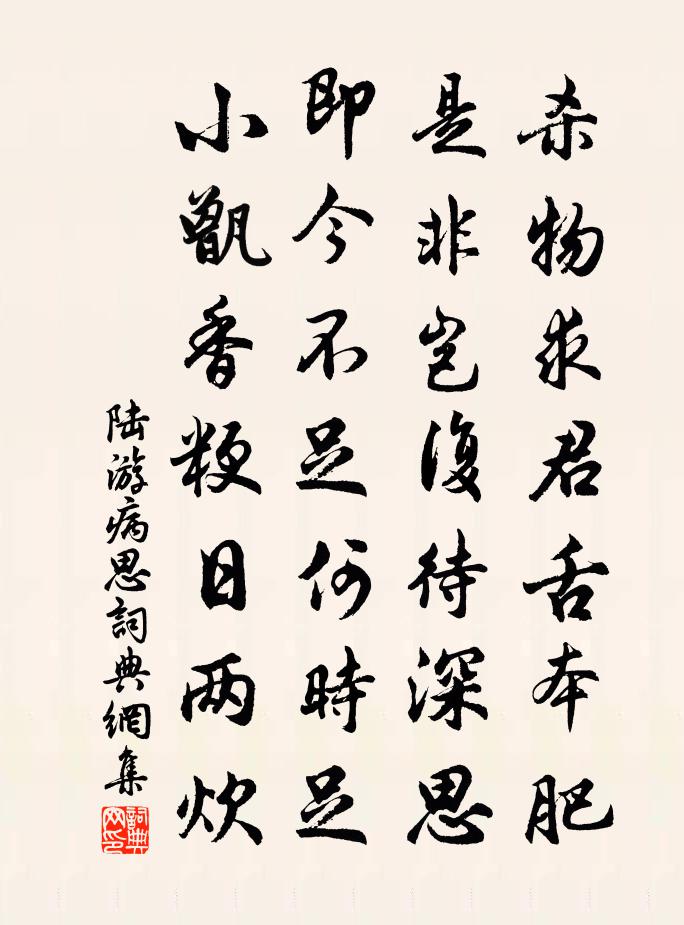 杀物求君舌本肥
是非岂復待深思
即今不足何時足
小甑香粳日两炊
陆游病思詞典網集
詞典网印